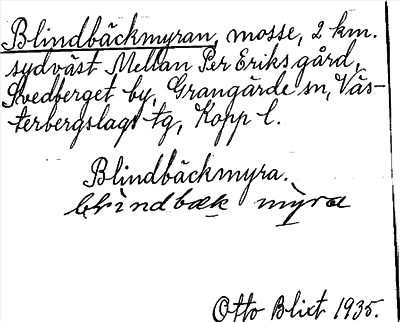 Blindbäckmyran, mosse, 2 km.
sydväst Mellan Per Eriks gård,
Svedberget by, Grangärde sn, Väs-
terbergslags tg, Kopp l.
Blindbäckmyra.
bæk myra
Otto Blixt 1935.